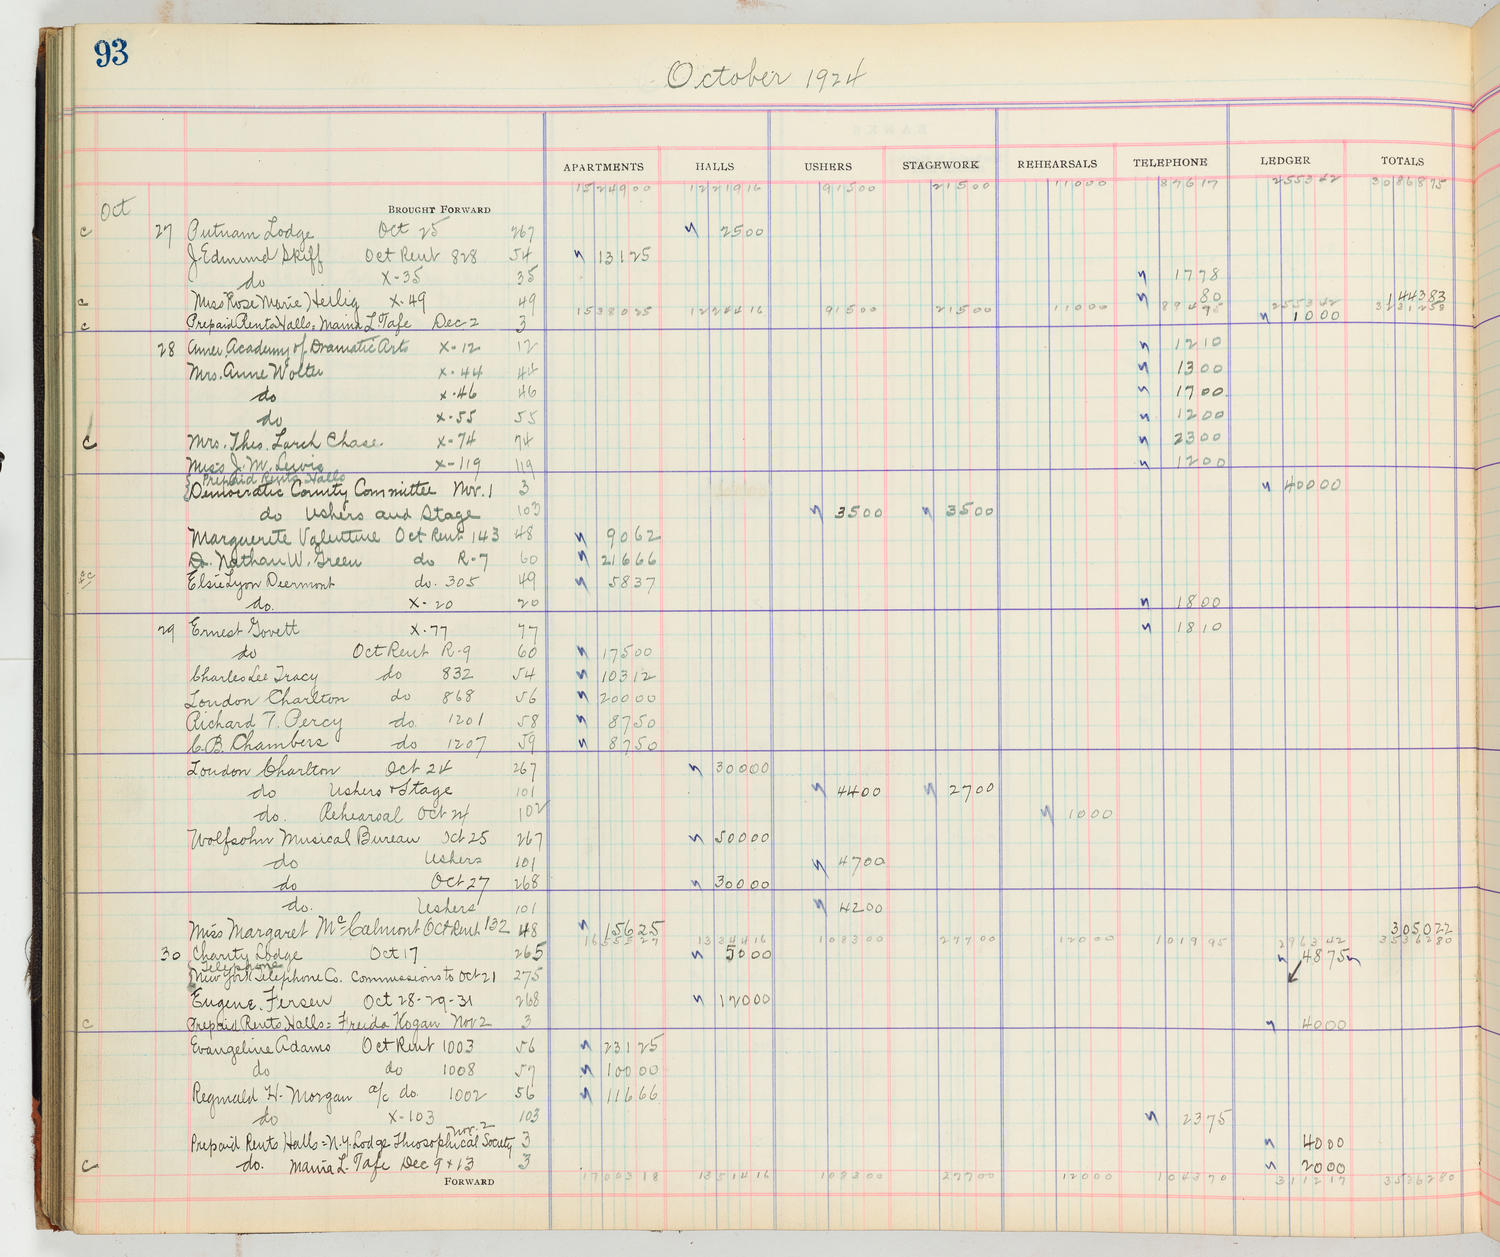 93
October 1924
APARTMENTS HALLS USHERS STAGEWORK REHEARSALS TELEPHONE LEDGER TOTALS
1524900 1221916 91500 21500 11000 87617 255342 3086875
Oct BROUGHT FORWARD
c 27 Putnam Lodge Oct 25 267 2500
J Edmund Skiff Oct Rent 828 54 13125
do X-35 35 1778
c Miss Rose Marie Heilig X-49 49 80 144383
1538025 1224416 91500 21500 11000 89475 255342 3231258
c Prepaid Rents Halls: Maina L Tafe Dec 2 3 1000
28 Amer Academy of Dramatic Arts X-12 12 1210
Mrs. Anne Wolter X-44 44 1300
do X-46 46 1700
do X-55 55 1200
c Mrs. Thes. Larch Chase. X-74 74 2300
Miss J. M. Lewis X-119 119 1200
Prepaid Rents Halls
Democratic County Committee Nov. 1 3 40000
do Ushers and Stage 103 3500 3500
Marguerite Valentine Oct Rent 143 48 9062
Dr. Nathan W. Green do R-7 60 21666
Elsie Lyon Deermont do. 305 49 5837
do. X-20 20 1800
29 Ernest Govett X-77 77 1810
do Oct Rent R-9 60 17500
Charles Lee Tracy do 832 54 10312
Loudon Charlton do 868 56 20000
Richard T. Percy do. 1201 58 8750
C. B. Chambers do 1207 59 8750
Loudon Charlton Oct 24 267 30000
do Ushers + Stage 101 4400 2700
do. Rehearsal Oct 24 102 1000
Wolfsohn Musical Bureau Oct 25 267 50000
do Ushers 101 4700
do Oct 27 268 30000
do. Ushers 101 4200
Miss Margaret McCalmont Oct Rent 132 48 15625 305022
1655527 1334416 108300 27700 12000 101995 296342 3536280
30 Charity Lodge Oct 17 265 5000
Telephone
New York Telephone Co. Commissions to Oct 21 275 4875
Eugene Fersen Oct 28-29-31 268 12000
c Prepaid Rents Halls: Freida Kogan Nov 2 3 4000
Evangeline Adams Oct Rent 1003 56 23125
do do 1008 57 10000
Reginald H. Morgan a/c do. 1002 56 11666
do X-103 103 2375
Nov. 2
Prepaid Rents Halls: N.Y. Lodge Theosophical Society 3 4000
c do. Maina L. Tafe Dec 9 + 13 3 2000
FORWARD 1700318 1351416 108300 27700 12000 104370 311217 3536280